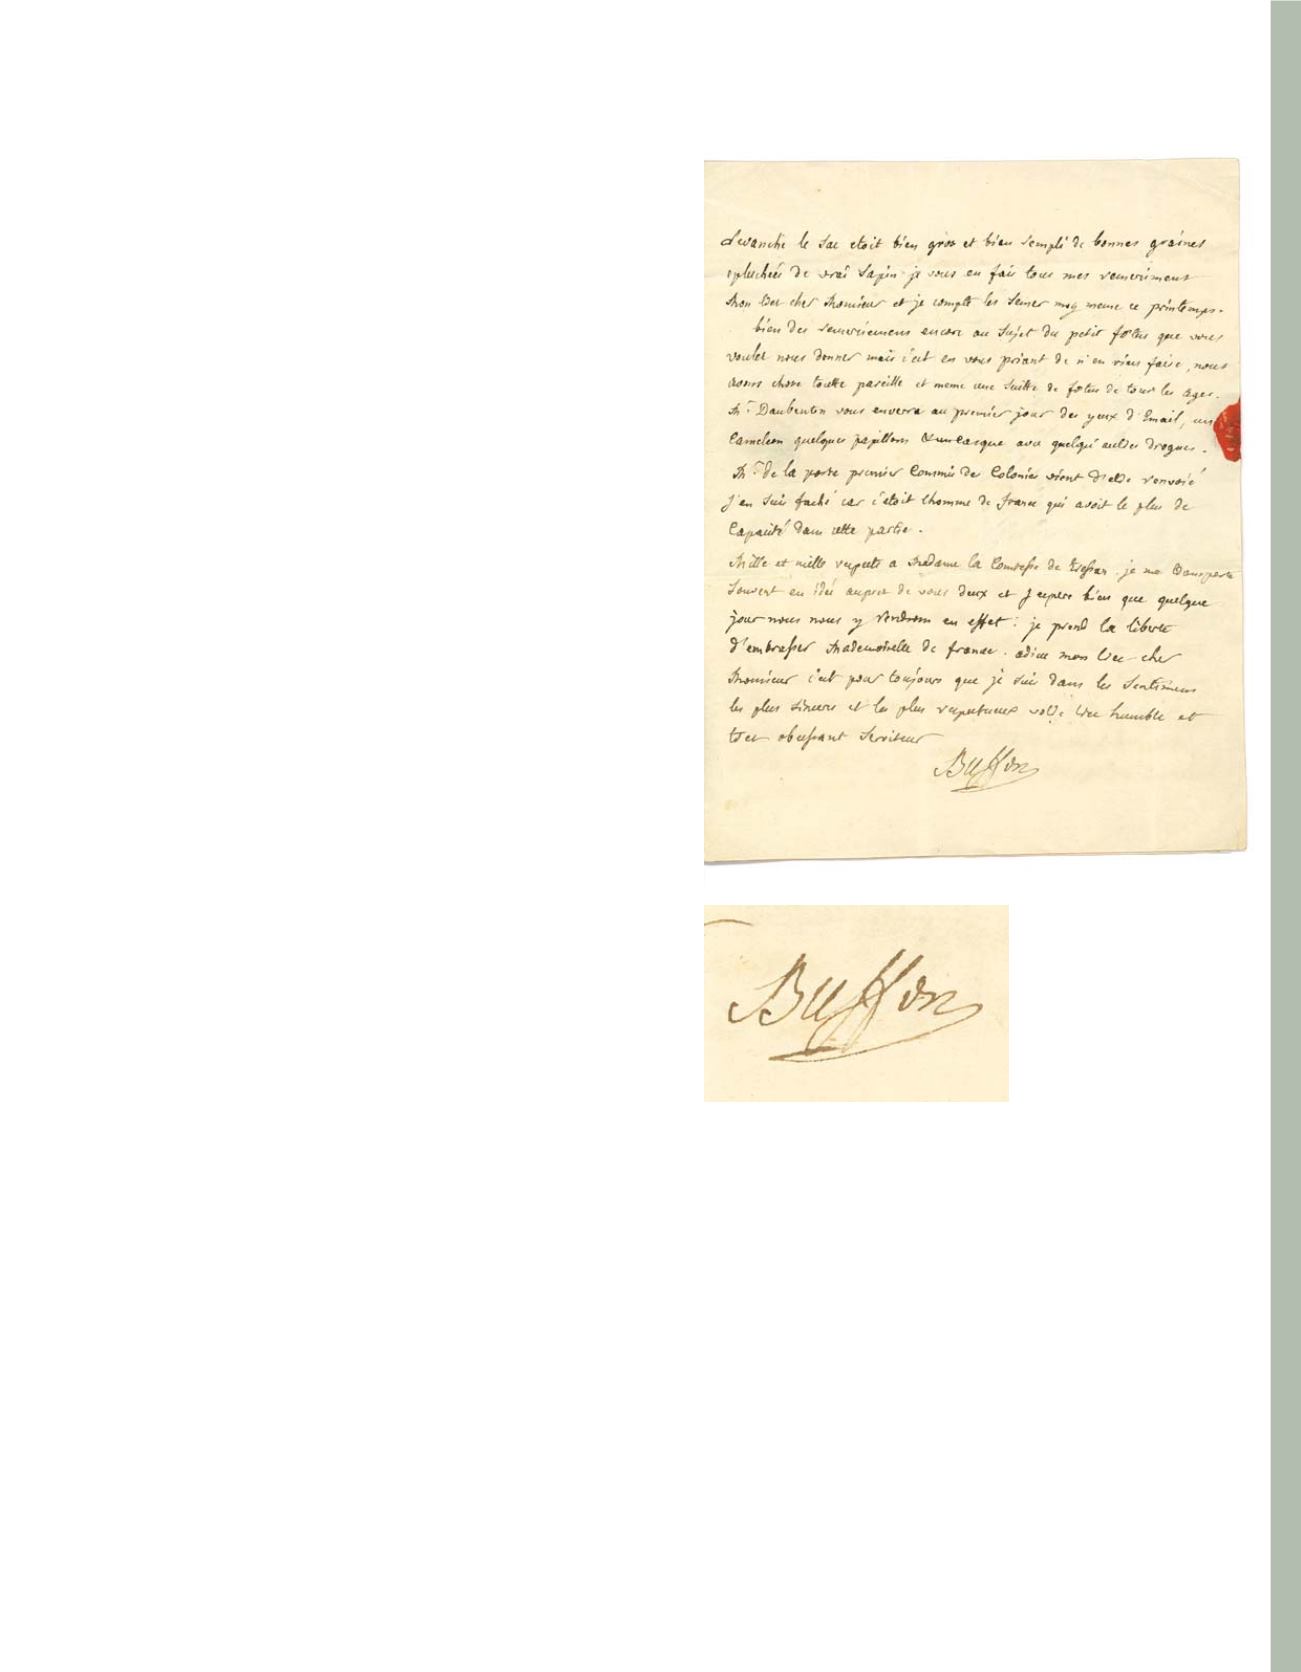 revanche le sac etoit bien gros et bien rempli de bonnes graines
epluchées de vrai sapin je vous en fais tous mes remerciments
mon tres cher Monsieur et je compte les semer moy meme ce printemps.
bien des remerciemens encore au sujet du petit fœtus que vous
voulez nous donner mais c'est en vous priant de n'en rien faire, nous
avons chose toutte pareille et meme une suitte de fœtus de tous les ages.
Mr Daubenton vous enverra au premier jour des yeux d'Email, un
Cameleon quelques papillons & un casque avec quelqu'autres drogues.
Mr de la porte premier Commis des Colonies vient d'etre renvoié
j'en suis faché car c'etoit lhomme de france qui avoit le plus de
Capacité dans cette partie.
Mille et mille respects a Madame la Comtesse de Tressan. je me transporte
souvent en idée aupres de vous deux et j'espere bien que quelque
jour nous nous y rendrons en effet: je prend la liberté
d'embrasser Mademoiselle de france. adieu mon tres cher
Monsieur c'est pour toujours que je suis dans les sentimens
les plus sinceres et les plus respectueux votre tres humble et
tres obeissant serviteur
Buffon
Buffon